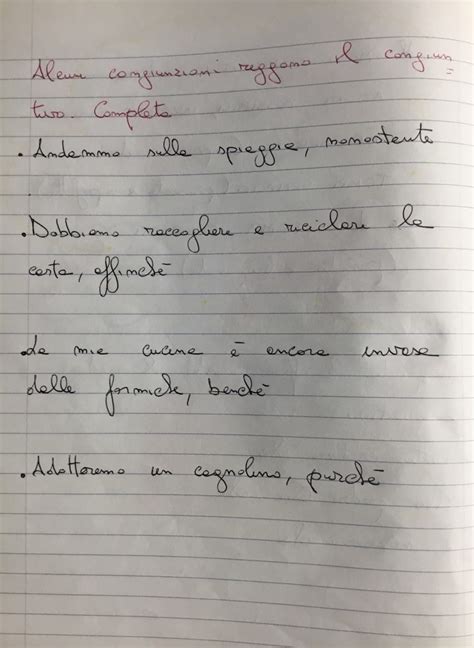 Alcune congiunzioni reggono il congiun
tivo. Completa
. Andammo sulla spiaggia, nonostante
. Dobbiamo raccogliere e riciclare la
carta, affinchè
. La mia cucina è ancora invasa
dalle formiche, benchè
. Adotteremo un cagnolino, purchè